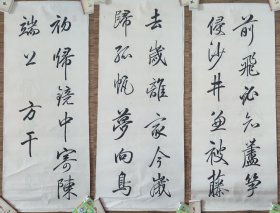 初歸鏡中寄陳
端公 方干
去歲離家今歲
歸孤帆夢向鳥
前飛必知蘆筍
侵沙井兼被藤